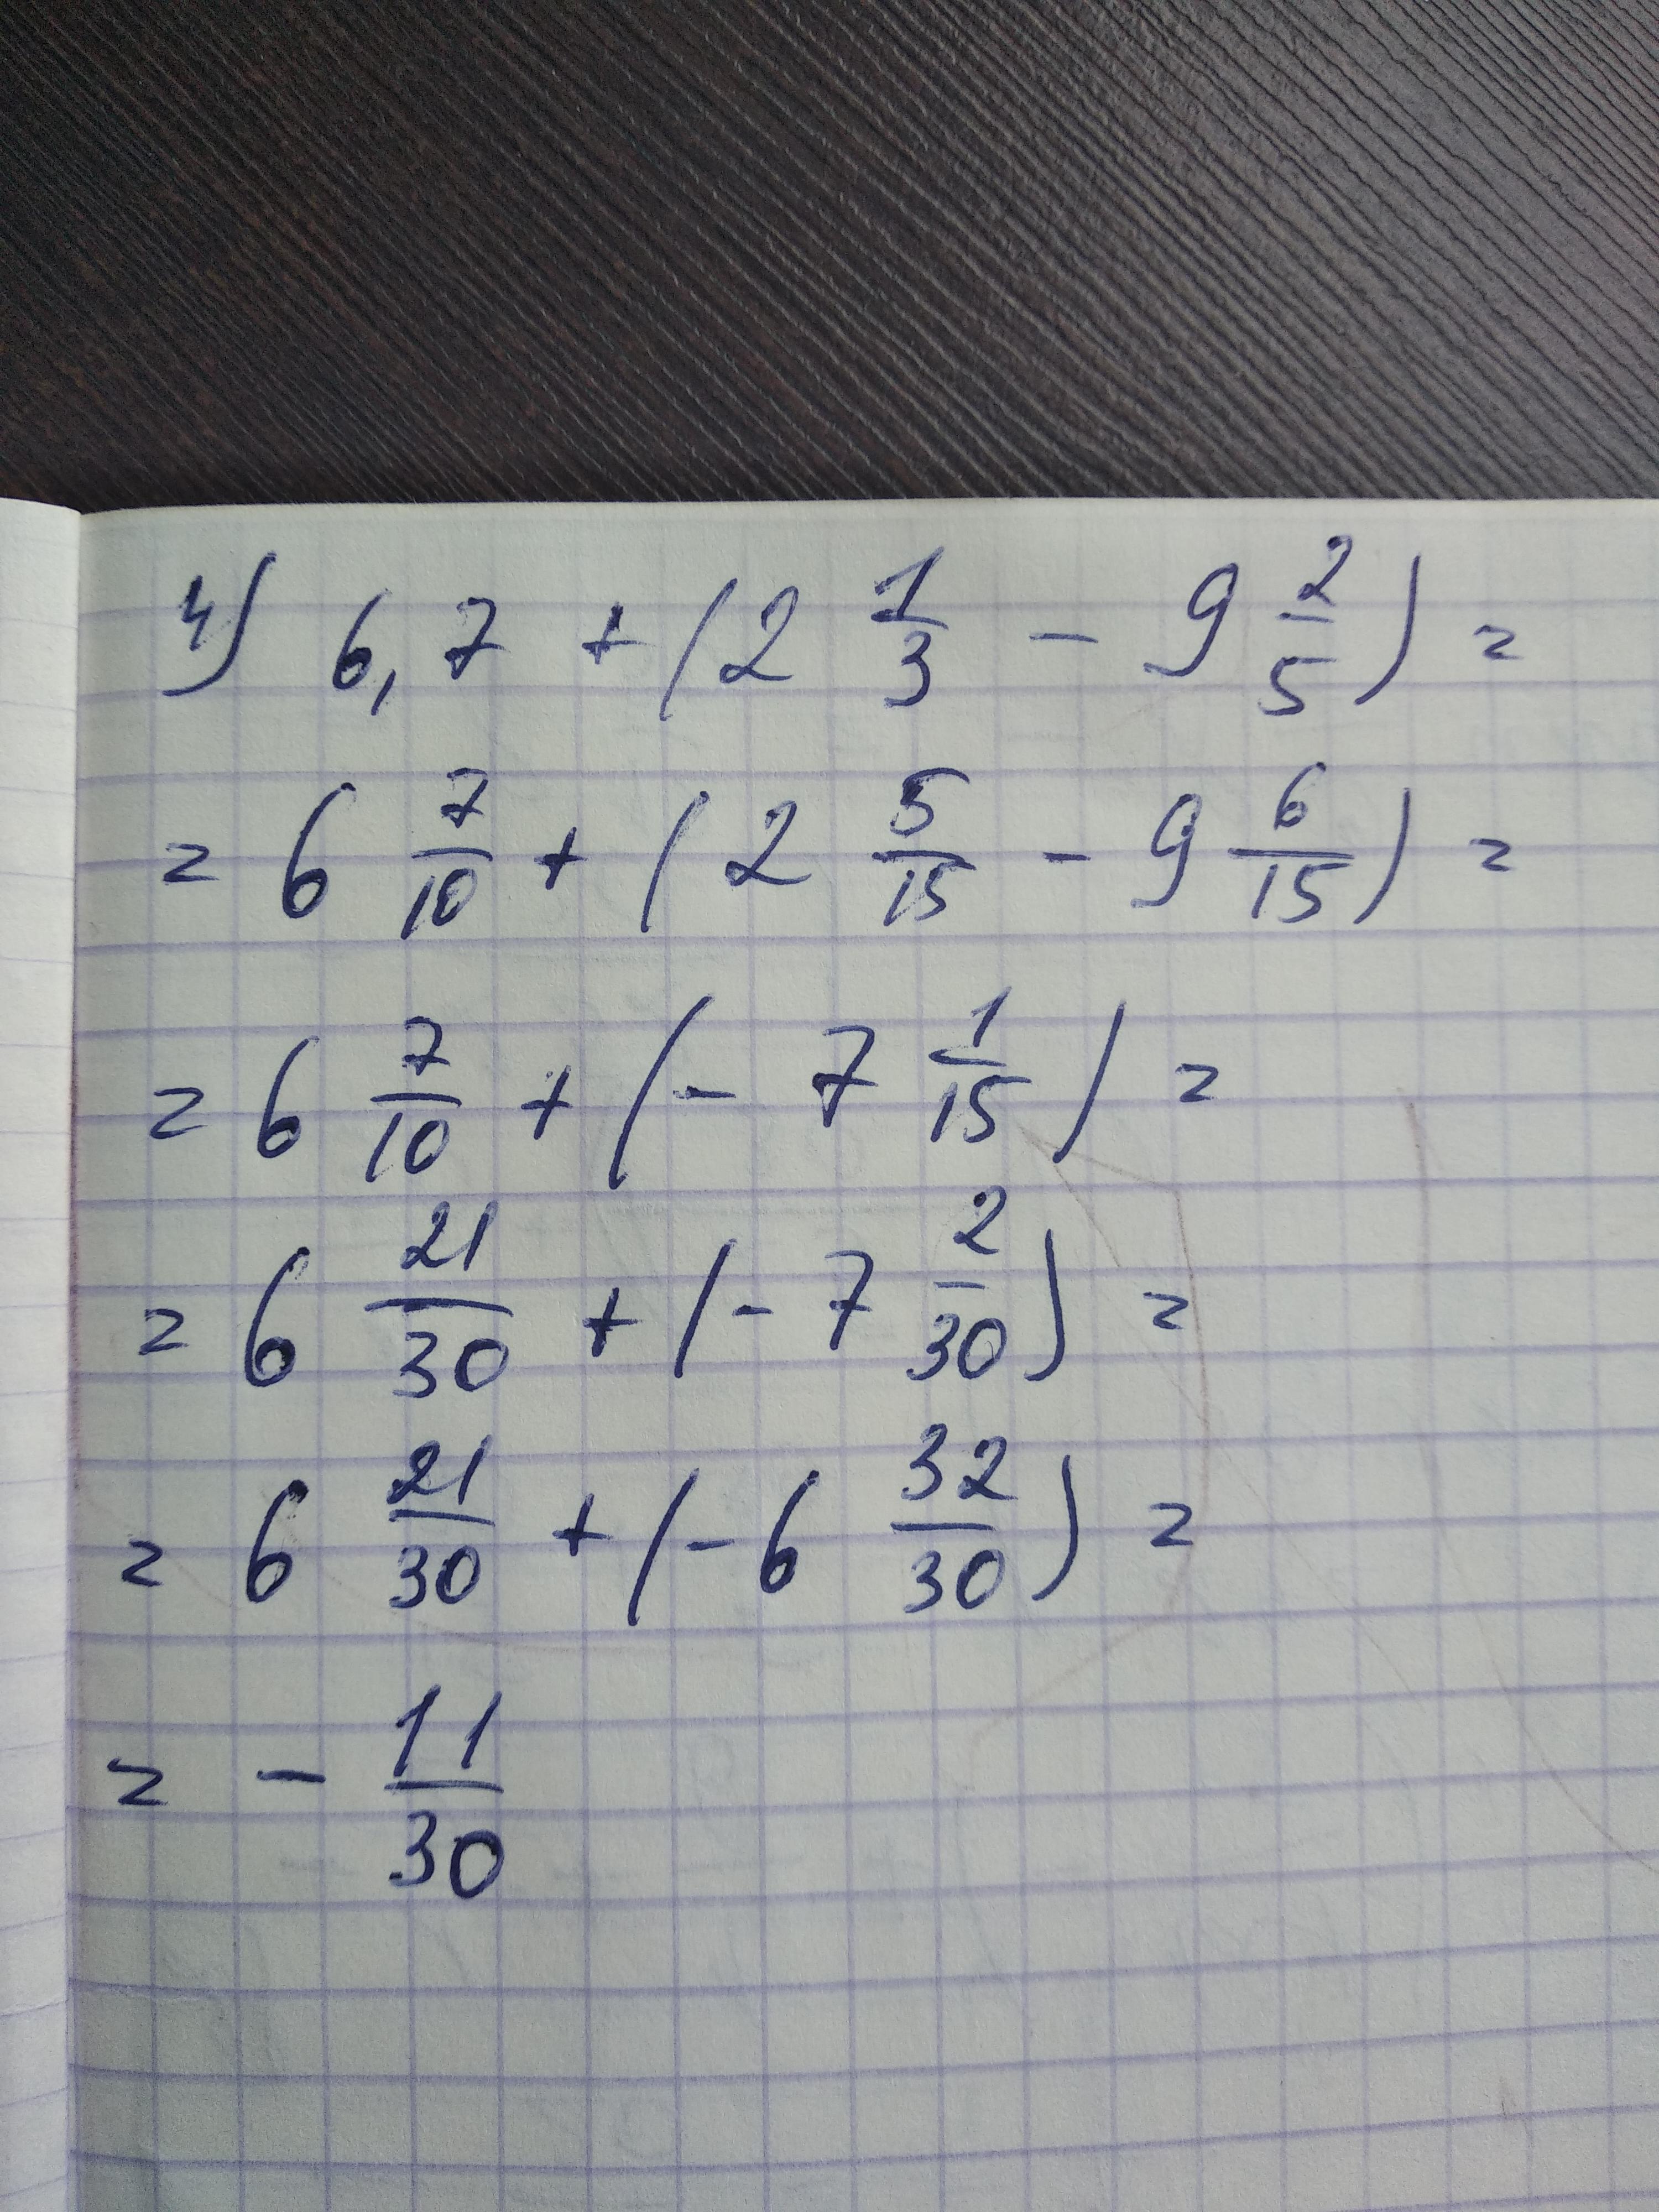 4) 6,7 + (2 1/3 - 9 2/5) =
= 6 7/10 + (2 5/15 - 9 6/15) =
= 6 7/10 + (- 7 1/15) =
= 6 21/30 + (- 7 2/30) =
= 6 21/30 + (- 6 32/30) =
= - 11/30